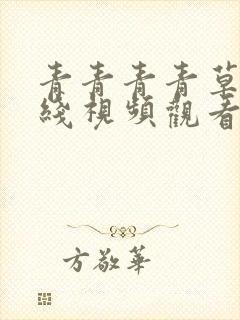 青青青青草
綫視頻觀看
方敬華